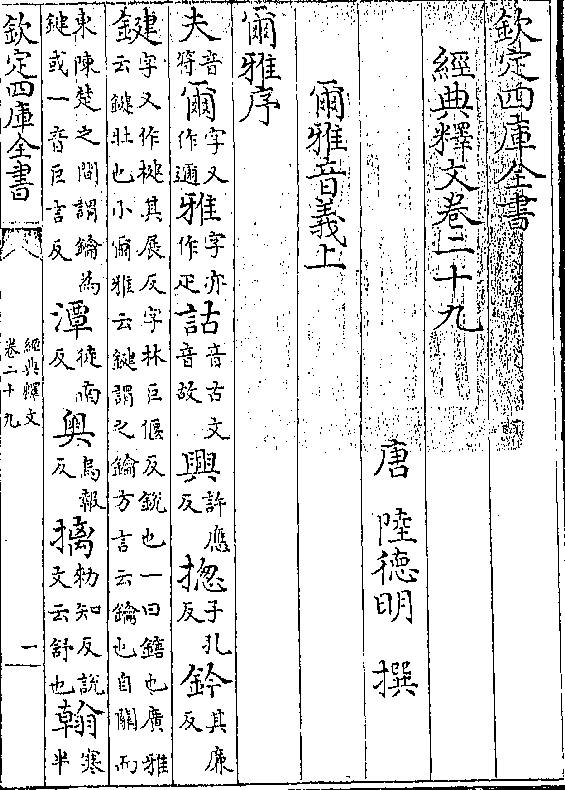 欽定四庫全書
經典釋文卷二十九
唐 陸德明 撰
爾雅音義上
爾雅序
夫音符爾字又作邇雅字亦作疋詁音古文音故興許應反揔子孔反鈐其廉反
鍵字又作楗其展反字林巨偃反鋭也一曰鐕也廣雅云鍵牡也小爾雅云鍵謂之鑰方言云鑰也自關而
東陳楚之間謂鑰為鍵或一音巨言反潭徒南反奥烏報反摛勑知反說文云舒也翰寒半
欽定四庫全書
經典釋文
卷二十九
一